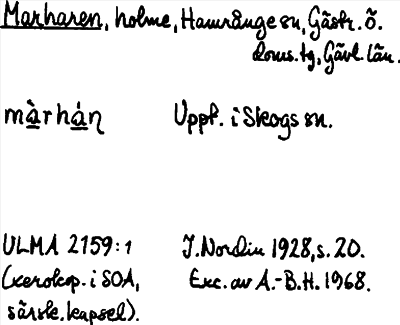 Marharen, holme, Hamrånge sn, Gästr. ö.
doms.tg, Gävl. län.
màrhán̥ Uppt. i Skogs sn.
ULMA 2159:1 J. Nordin 1928, s. 20.
(xerokop. i SOA, Exc. av A.-B.H. 1968.
särsk. kapsel).